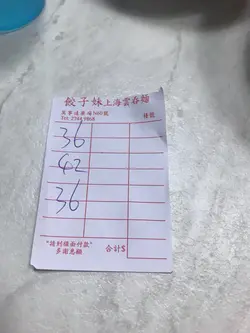 餃子妹上海雲吞麵
檯號
36
42
36
"請到櫃面付款"
多謝惠顧
合計$